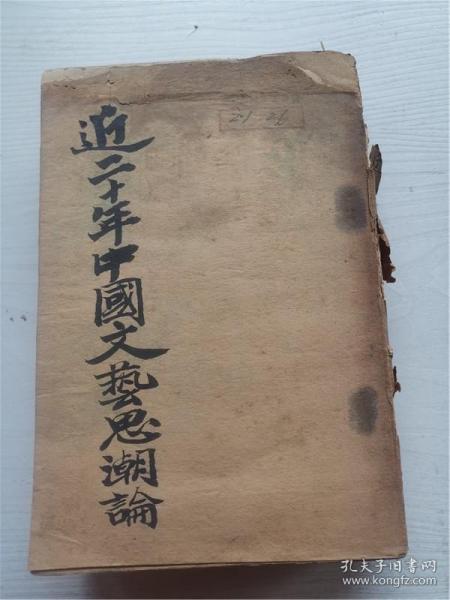 近二十年中國文藝思潮論
21 26
孔夫子旧书网
www.kongfz.com